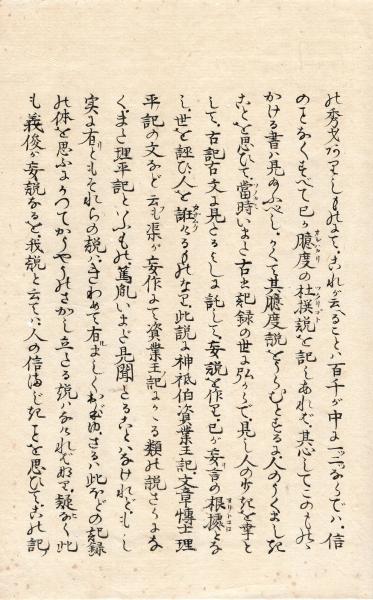 の秀才めかしものにて、これが云へることハ百千が中に一二ならでハ、信
のことなくすべて己が臆度の杜撰説を記しあれば、其心してこのものゝ
かける書ハ見あふべし、かくて其臆度説をうらむとするに、人のうくましき
ことを思ひて、當時いまだ古き記録の世に弘からで、見し人の少きを幸と
して、古記古文に見えたるよしに託して、妄説を作り、己が妄言の根據とな
し、世を誣ひ人を誑かるものなり、此説に神祇伯資業王記、文章博士理
平記の文など云も渠が妄作にて資業王記にかゝる類の説さらにな
く、また理平記とふもの、篤胤いまだ見聞たることハなけれども、もし
実に有ともそれらの説ハ、きわめて有ましくおぼゆ、さるハ此ほどの記録
の体を思ふにかつてかうやうのさかし立たる説ハなければなり、疑なく此
も義俊が妄説なるを、我説と云てハ人の信まじきことを思ひて、この記